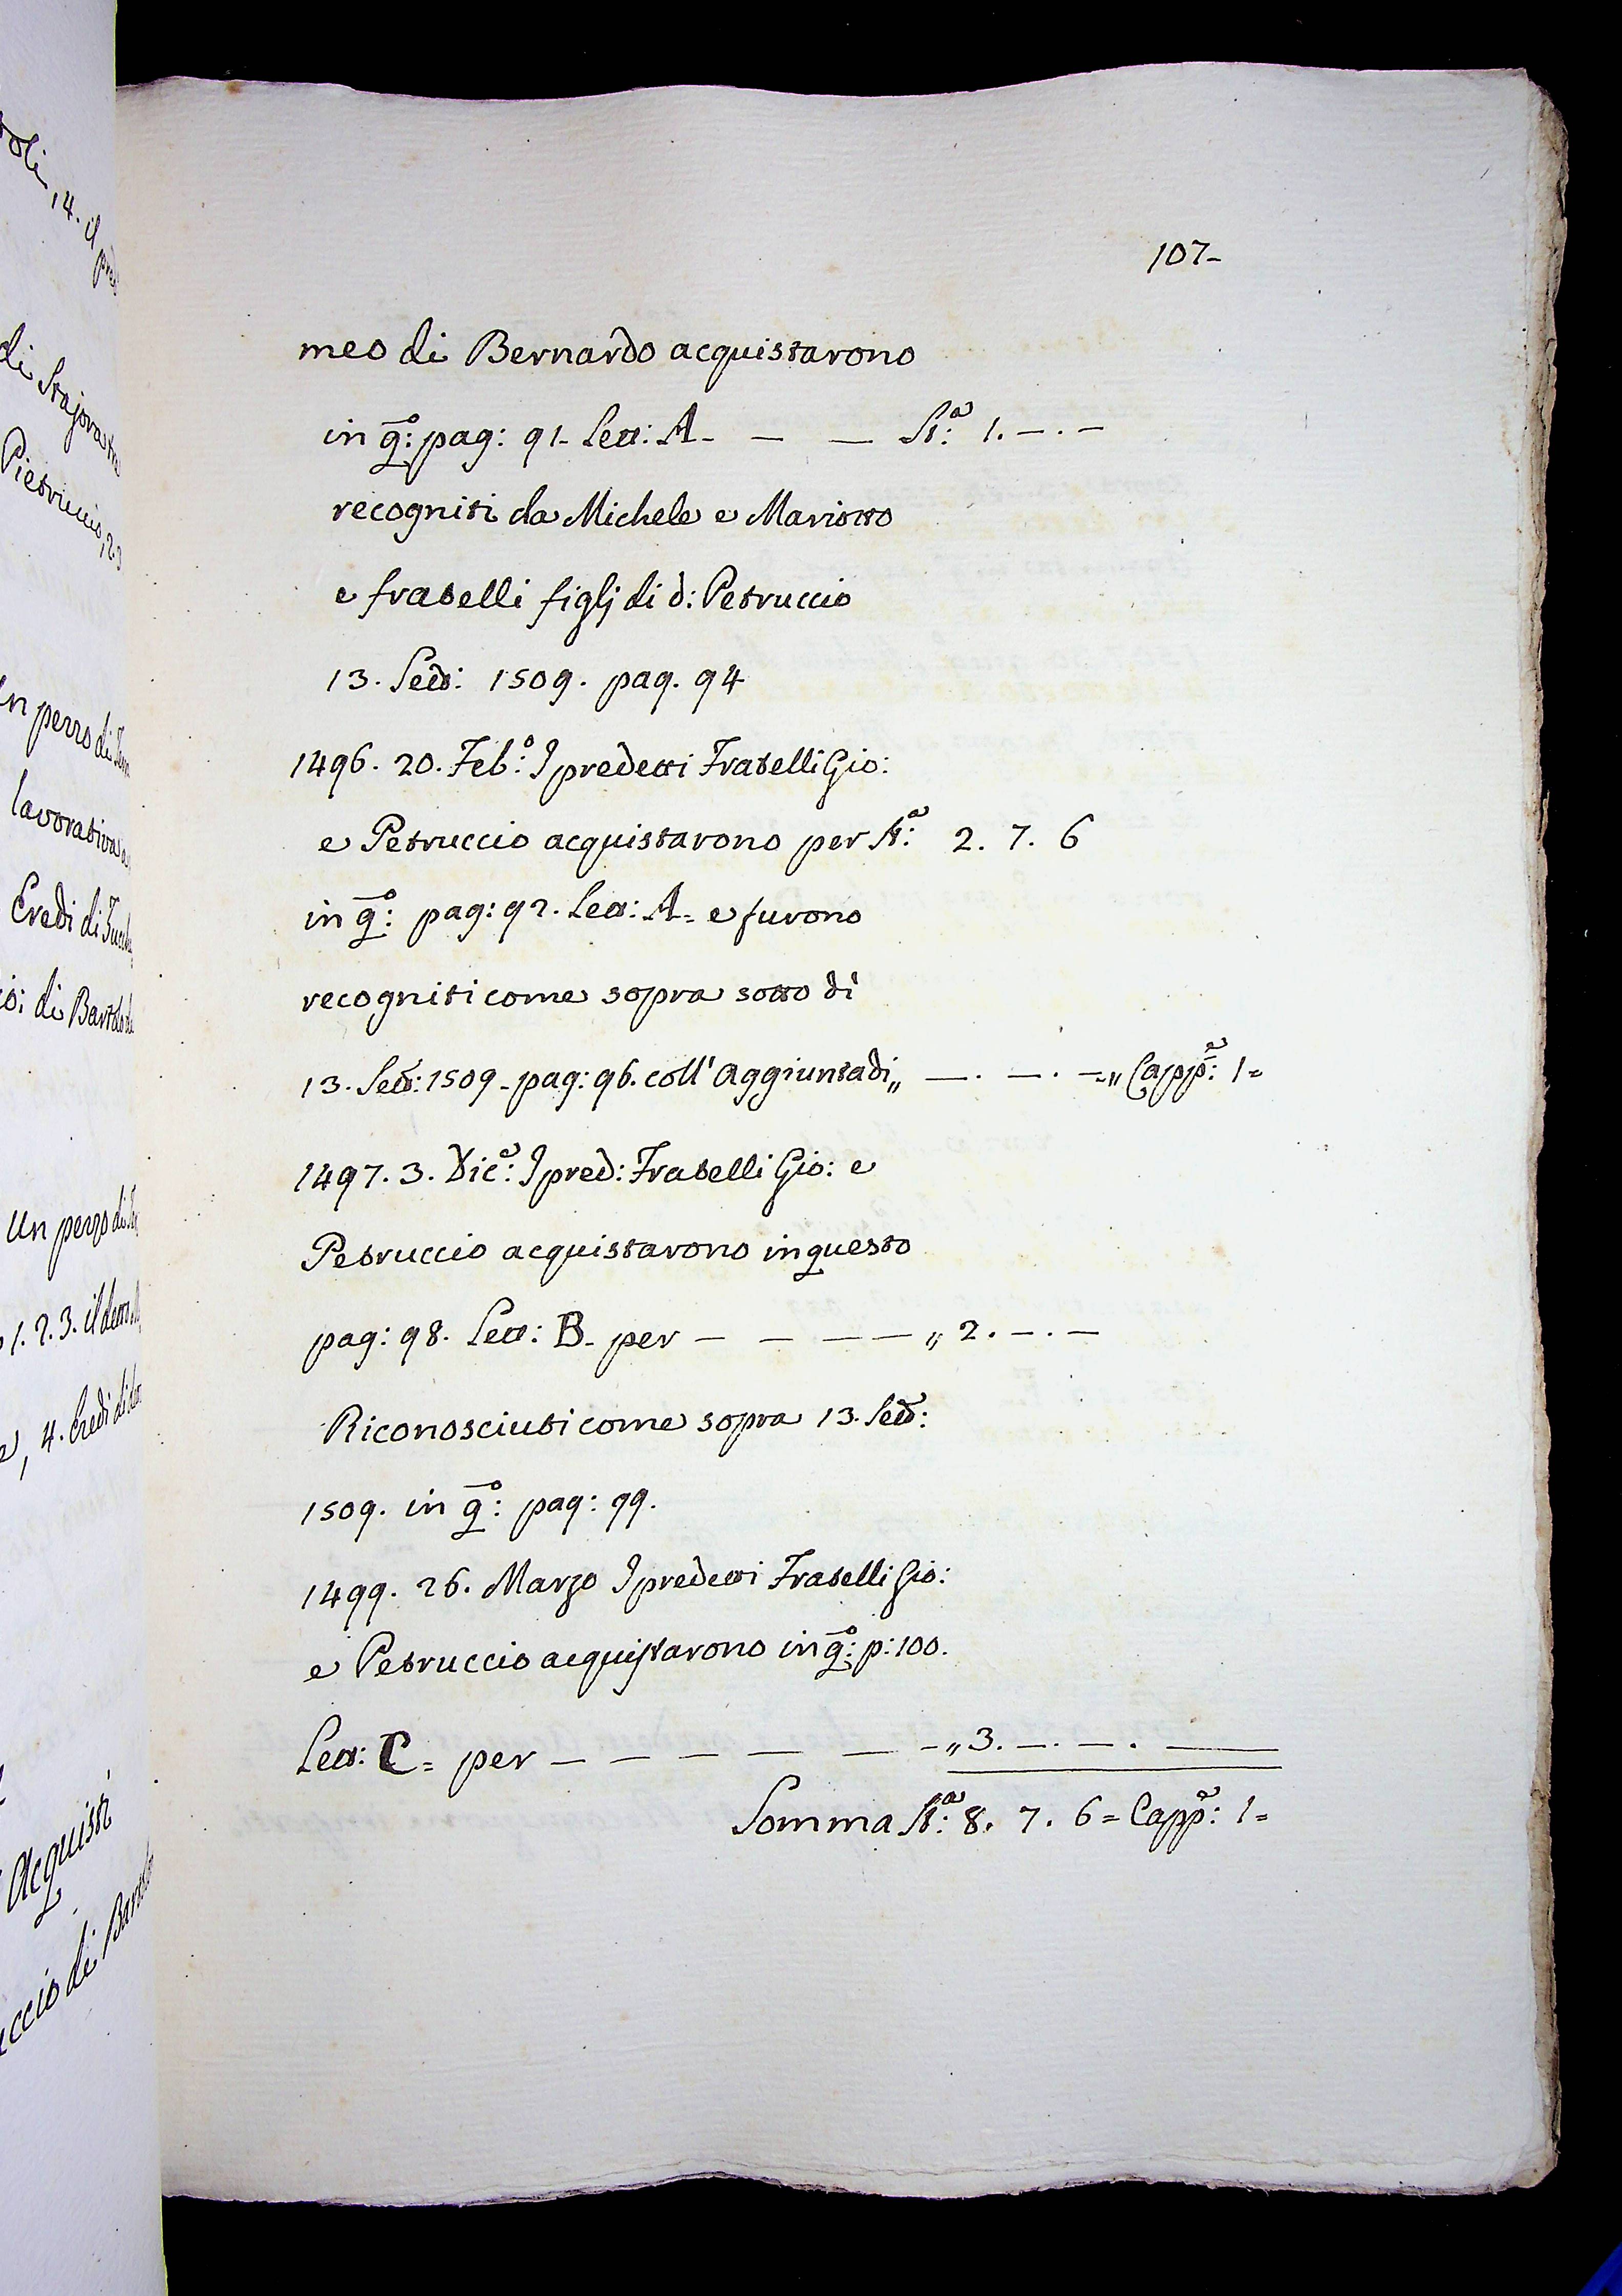 107-
meo di Bernardo acquistarono
in q̄:º pag: 91- Lett: A- — — St:ª 1. —. —
recogniti da Michele e Mariotto
e fratelli figlj di d: Petruccio
13. Sett: 1509. pag. 94
1496. 20. Feb:º I predetti Fratelli Gio:
e Petruccio acquistarono per St:ª 2. 7. 6
in q̄:º pag: 92. Lett: A- e furono
recogniti come sopra sotto dì
13. Sett: 1509- pag: 96. coll' Aggiunta di „ —. —. —„ Capp:ª 1=
1497. 3. Dic:ᵉ I pred: Fratelli Gio: e
Petruccio acquistarono in questo
pag: 98. Lett: B- per — — — — „ 2. —. —
Riconosciuti come sopra 13. Sett:
1509. in q̄:º pag: 99.
1499. 26. Marzo I predetti Fratelli Gio:
e Petruccio acquistarono in q̄:º p: 100.
Lett: C= per — — — — — - „ 3. —. —. —
Somma St:ª 8. 7. 6= Capp:ª 1=
14. il
di Stajora
Pietruccio,
un pezzo di
lavorativa
Eredi di
di Bartolo
Un pezzo di
1. 2. 3. il detto
4. Eredi di
Acquisti
di